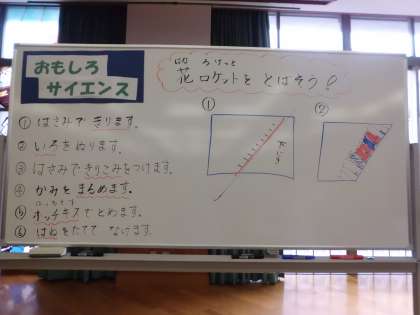 おもしろ
サイエンス
花ロケットを とばそう!
① はさみで きります。
② いろをぬります。
③ はさみできりこみをつけます。
④ かみを まるめます。
⑤ ホッチキスで とめます。
⑥ はねをたてて なげます。
①
②